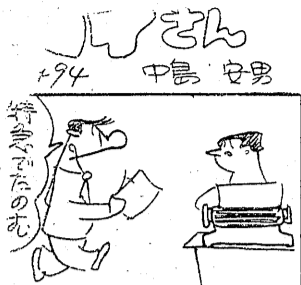 さん
94
中島 安男
特急でたのむ